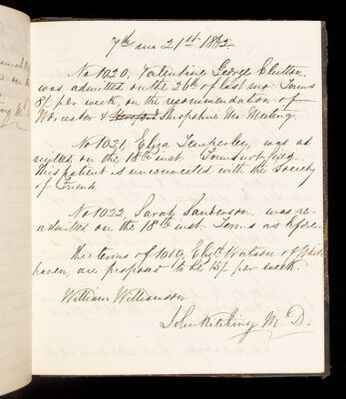 7th mo 21st 1853.
No 1020, Valentine George Clutton,
was admitted on the 26th of last mo. Terms
8/ per week, on the recommendation of
Worcester & Shropshire Mo. Meeting.
No 1021, Eliza Temperley, was ad
mitted on the 18th inst. Terms not fixed.
This patient is unconnected with the Society
of Friends.
No 1022, Sarah Sanderson was re-
admitted on the 18th inst Terms as before.
The terms of 1019, Elizth Watson of White
haven, are proposed to be 15/ per week.
William Williamson
John Kitching M. D.